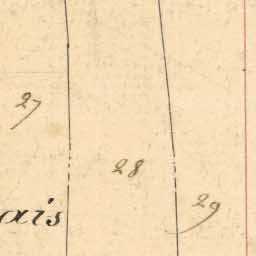 27
28
29
ais